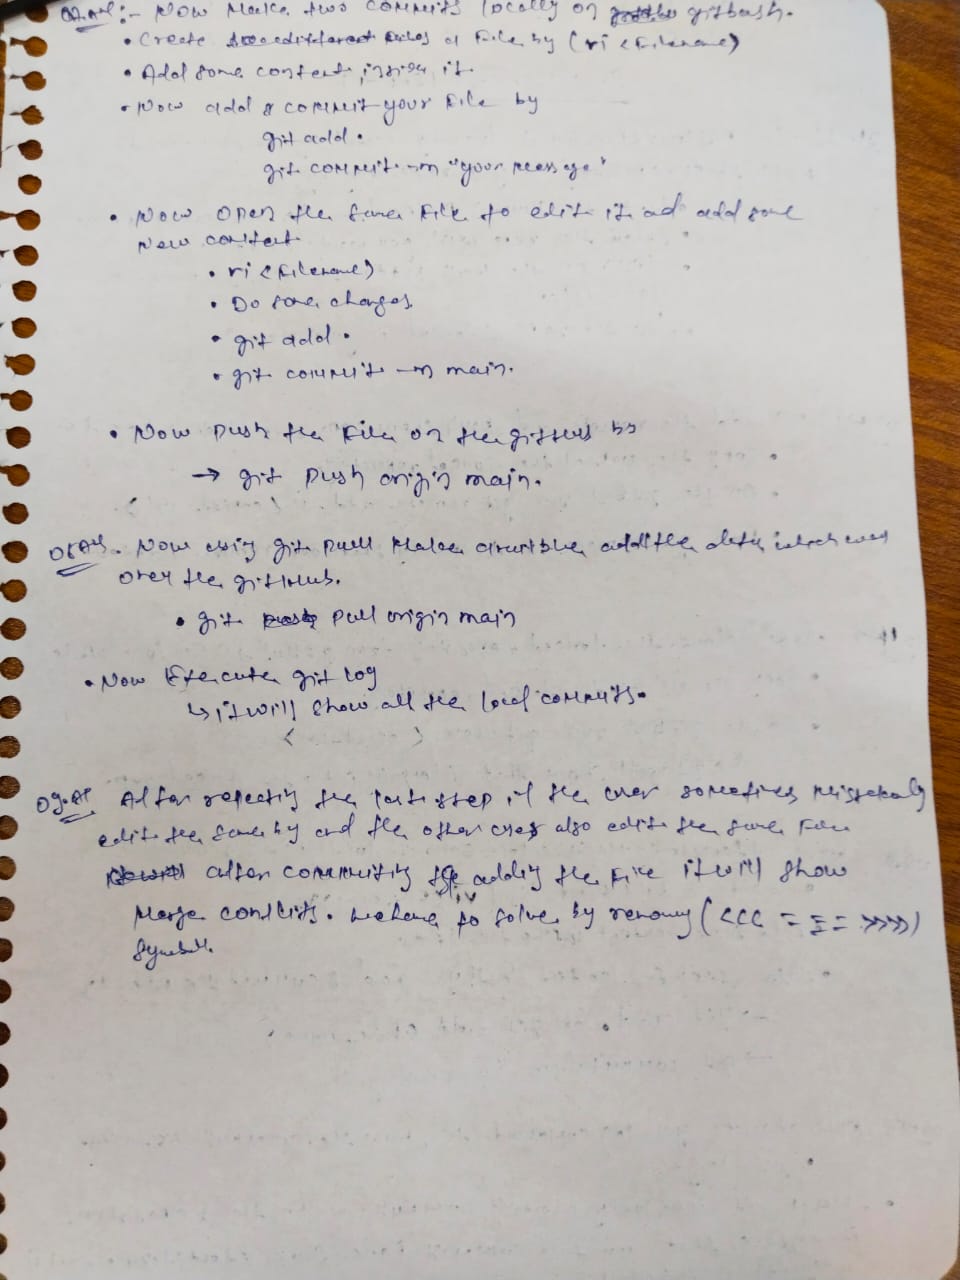 :- Now Make two commits locally on gitbash.
• Create a File by (vi <Filename>)
• Add some content inside it
• Now add & commit your File by
git add .
git commit -m "your message"
• Now open the same File to edit it ad add some
New content
• vi <Filename>
• Do some changes
• git add .
• git commit -m main.
• Now push the File on the github by
→ git push origin main.
08 Ans. Now using git pull Make add the data which was
over the github.
• git pull origin main
• Now Execute git log
↳ it will show all the local commits.
09. After the last step if the user sometimes mistakenly
edit the same by and the other user also edit the same File
after committing adding the File it will show
Merge conflicts. to solve by (<<< = = = >>>>)
symbols.